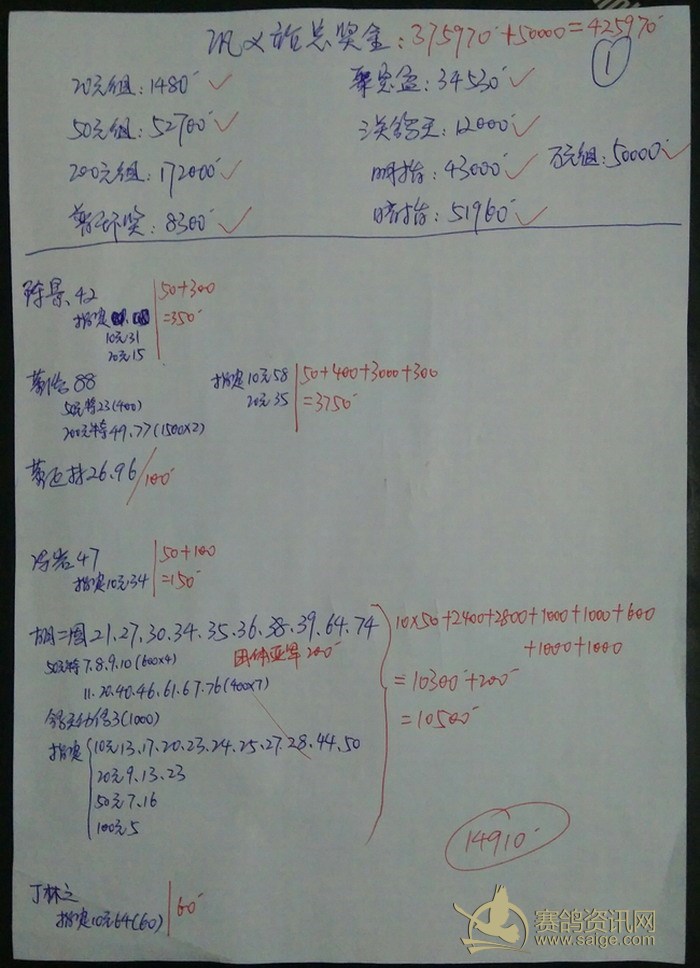 巩义站总奖金：375970+50000=425970
①
20元组：1480 ✓
聚宝盆：34530 ✓
50元组：52700 ✓
12000 ✓
200元组：172000 ✓
43000 ✓
万元组：50000 ✓
8300 ✓
51960 ✓
陈景 42
50+300
指定
=350
10元31
20元15
88
指定10元58
50+400+3000+300
50元特23(400)
20元35
=3750
200元特49.77(1500×2)
26.96
100
47
50+100
指定10元34
=150
胡二圈21.27.30.34.35.36.38.39.64.74
10×50+2400+2800+1000+1000+600
50元特7.8.9.10(600×4)
团体亚军200
+1000+1000
11.20.40.46.61.67.76(400×7)
=10300+200
3(1000)
=10500
指定
10元13.17.20.23.24.25.27.28.44.50
20元9.13.23
50元7.16
100元5
14910
丁林之
指定10元64(60)
60
赛鸽资讯网
www.saige.com